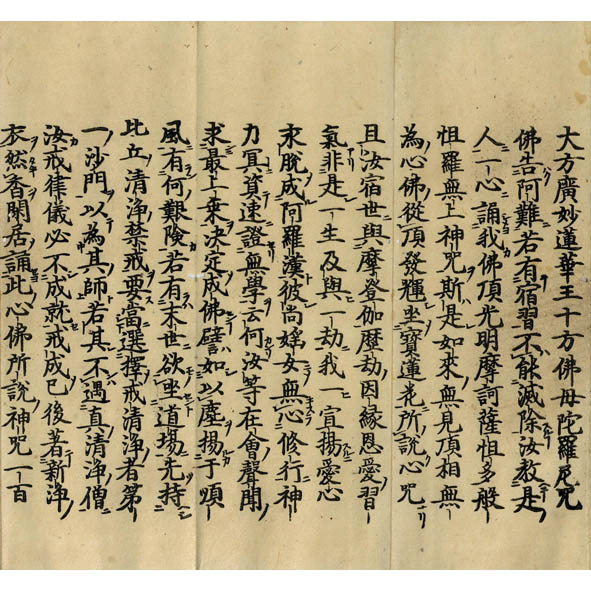 大方廣妙蓮華王十方佛母陀羅尼咒
佛告阿難若有宿習不能滅除汝教是
人一心誦我佛頂光明摩訶薩怛多般
怛羅無上神咒斯是如來無見頂相無
為心佛從頂發輝坐寶蓮花所說心咒
且汝宿世與摩登伽歷劫因緣恩愛習
氣非是一生及與一劫我一宣揚愛心
永脫成阿羅漢彼尚婬女無心修行神
力冥資速證無學云何汝等在會聲聞
求最上乗決定成佛譬如以塵揚于順
風有何艱險若有末世欲坐道場先持
比丘清淨禁戒要當選擇戒清淨者第
一沙門以為其師若其不遇真清淨僧
汝戒律儀必不成就戒成已後著新淨
衣然香閑居誦此心佛所說神咒一百